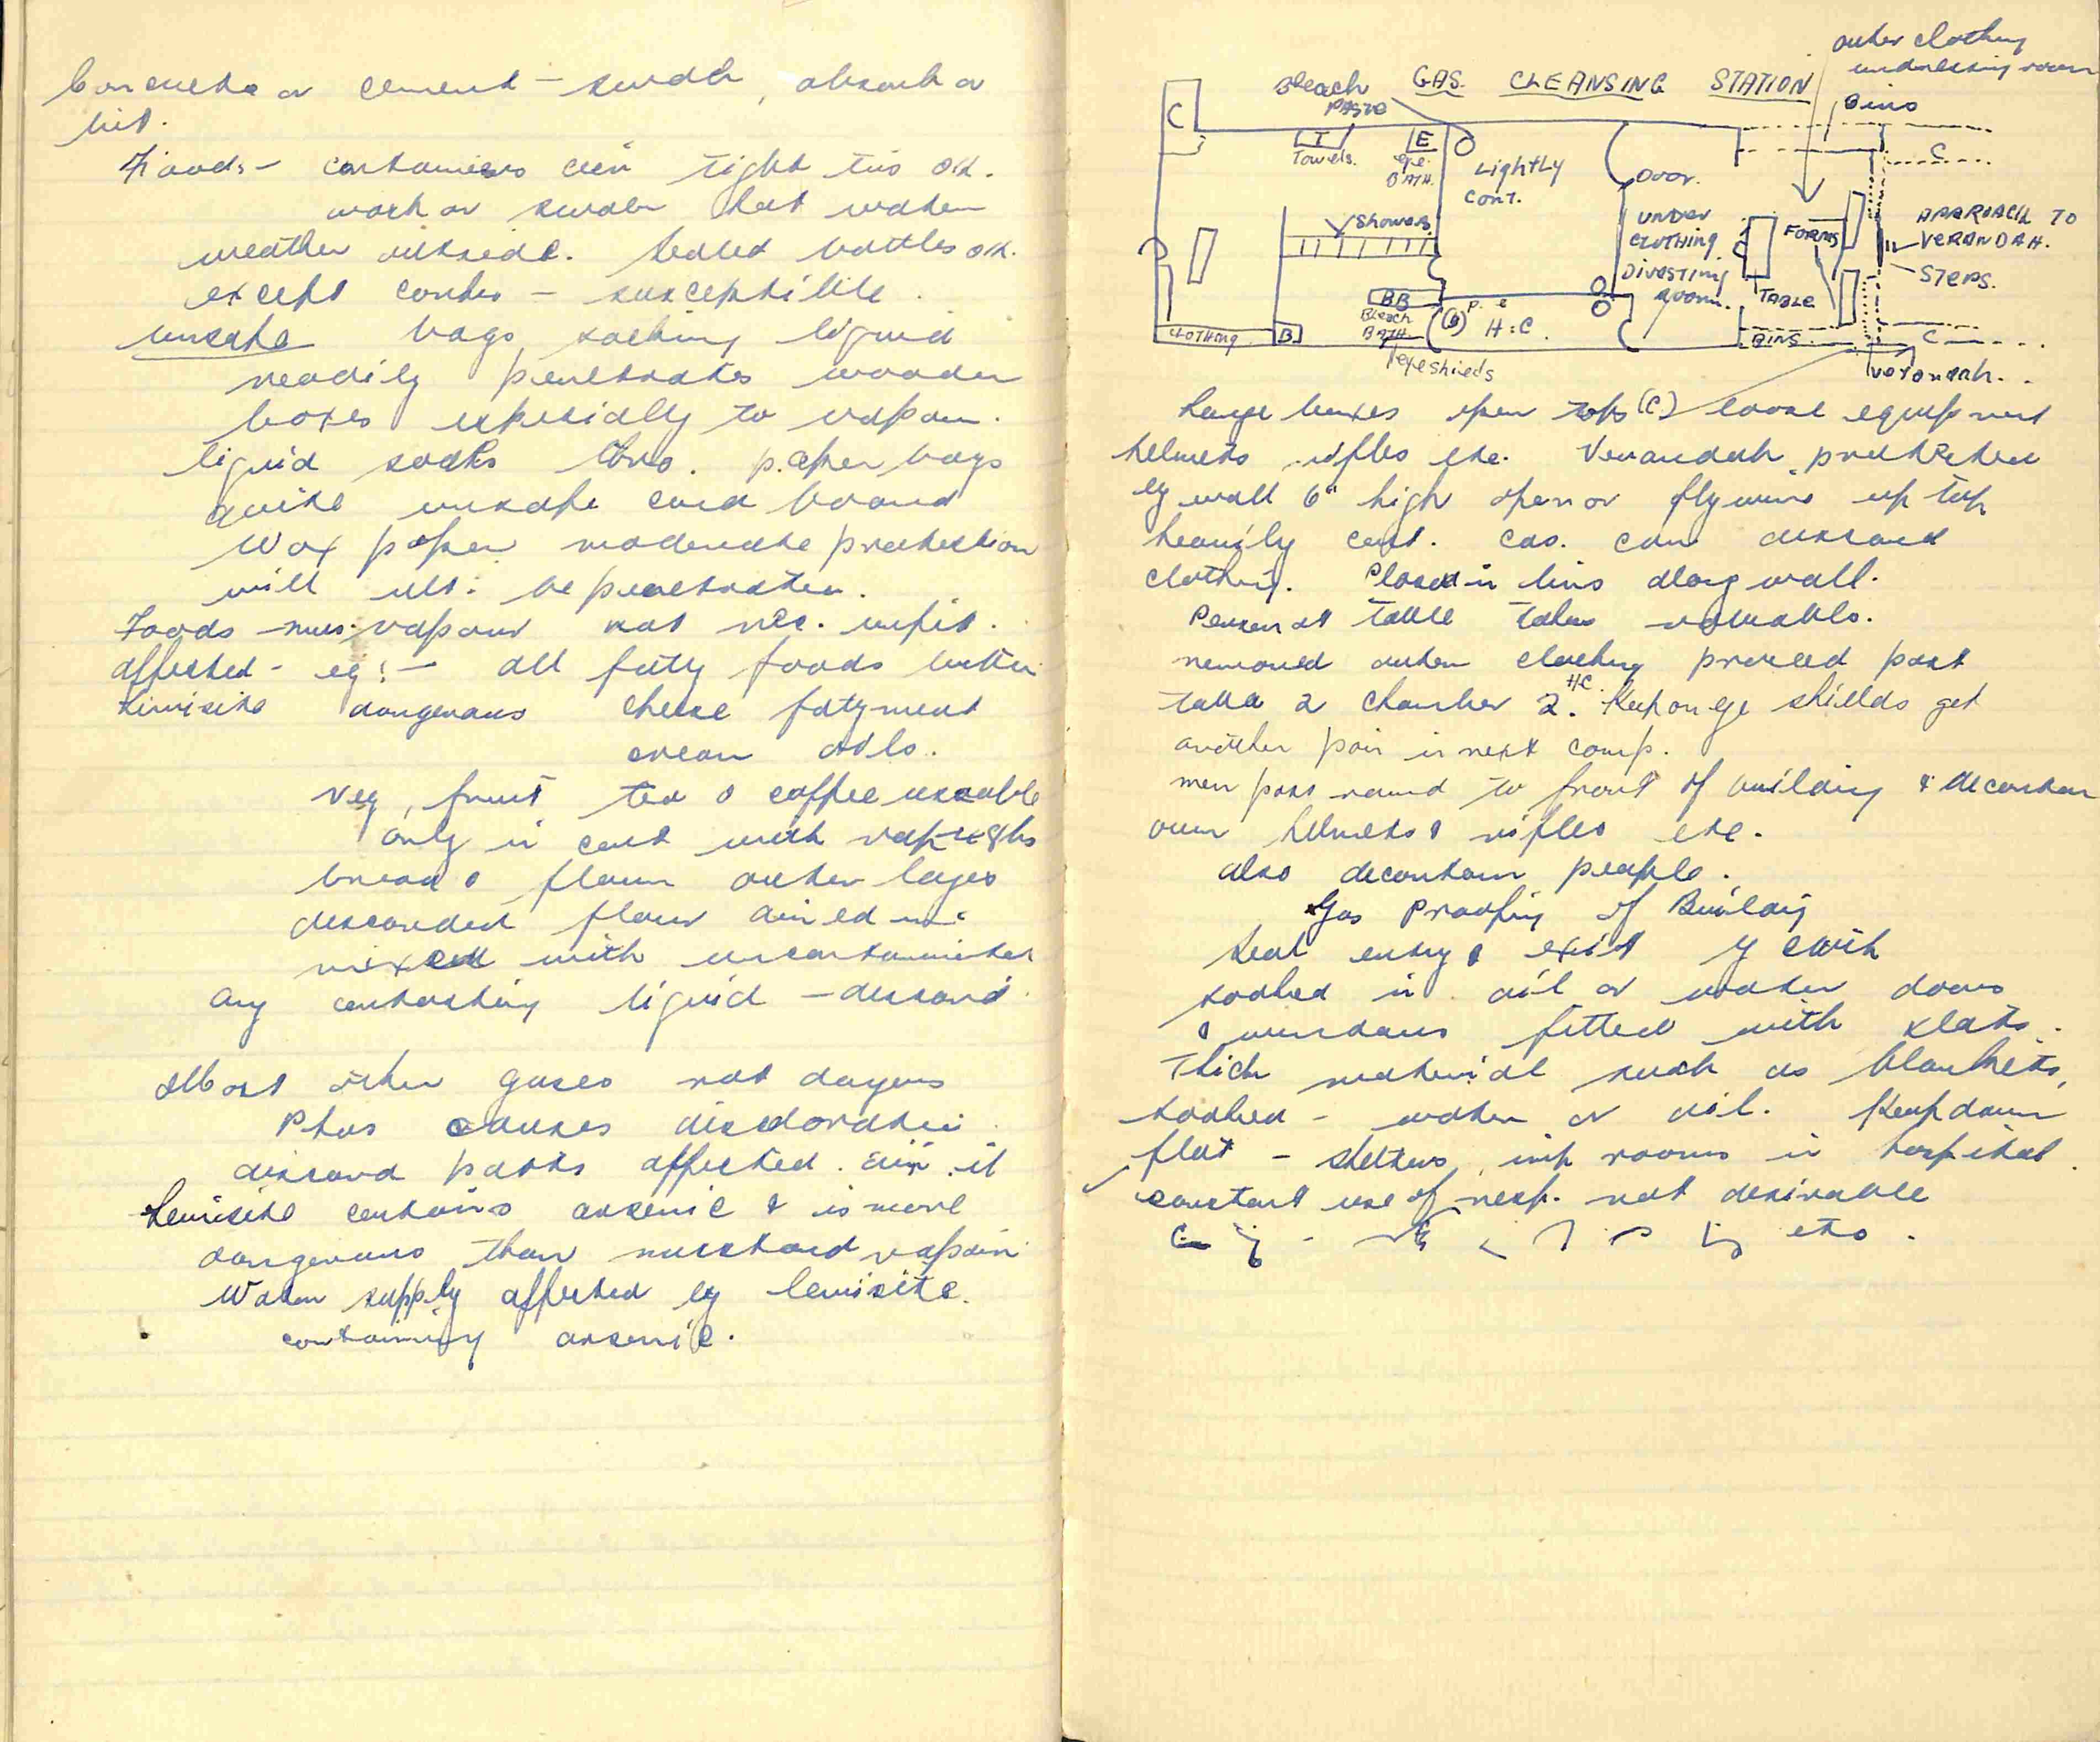 Concrete or cement - swab, absorb a
bit.
Foods - containers air tight tins O.K.
wash or swab hot water
weather outside. Sealed bottles O.K.
except corks - susceptible.
unsafe bags, sacking liquid
readily penetrates wooden
boxes especially to vapour.
liquid soaks thro. paper bags
quite unsafe card board
Wax paper moderate protection
will ult. be penetrated.
Foods mus. vapour not nec. unfit.
affected - eg: - all fatty foods butter
Lewisite dangerous cheese fatty meat
cream oils.
Veg, fruit tea & coffee useable
only in cont with vap
bread & flour outer layers
discarded flour aired
mixed with uncontaminated
any contacting liquid - discard
Most other gases not dangerous
Phos causes discoloration
discard parts affected. air it
Lewisite contains arsenic & is more
dangerous than mustard vapour
Water supply affected by lewisite.
containing arsenic.
outer clothing
undressing room
Bleach
Paste
GAS. CLEANSING STATION
Bins
C
T
Towels.
E
eye.
BATH.
Lightly
Cont.
Door.
C
Showers
UNDER
CLOTHING
DIVESTING
ROOM.
FORMS
APPROACH TO
VERANDAH.
STEPS.
TABLE
BB
Bleach
BATH
H.C.
CLOTHING
B
BINS
C
eyeshields
verandah.
Large boxes open tops (C) loose equipment
helmets, rifles etc. Verandah protected
by wall 6" high open or flywire up top
heavily cont. cas. can discard
clothing. Placed in bins along wall.
Person at table takes valuables.
removed outer clothing proceed past
table 2 chamber 2. H/C. Keep on eye shields get
another pair in next comp.
men pass round to front of building & decontam
own helmets & rifles etc.
also decontam people.
Gas Proofing of Building
Seal entry & exit
soaked in oil or water doors
& windows fitted with slats.
Thick material such as blankets,
soaked - water or oil. Keep down
flat - shelters, imp rooms in hospital.
constant use of resp. not desirable
etc.